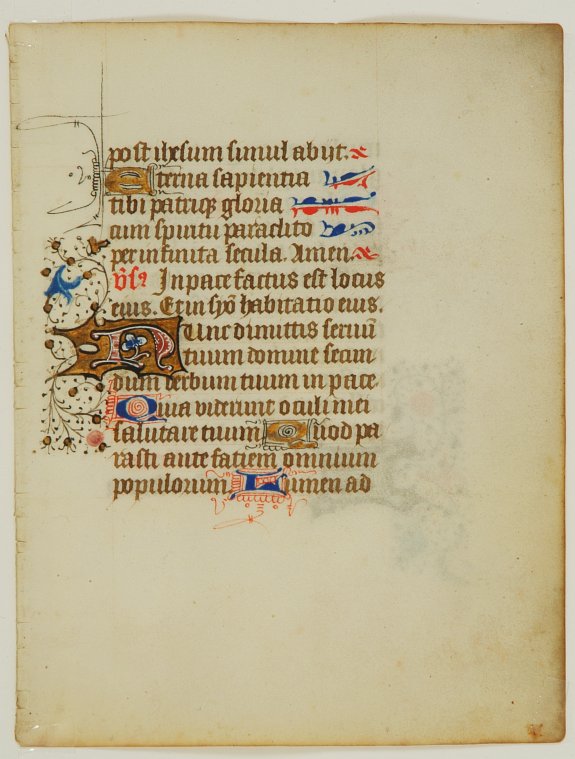 post ihesum simul abijt.
Eterna sapientia
tibi patriqꝫ gloria
cum spiritu paraclito
per infinita secula. Amen.
v̄s? In pace factus est locus
eius. Et in syō habitatio eius.
Nunc dimittis seruū
tuum domine secun
dum verbum tuum in pace
Quia viderunt oculi mei
salutare tuum Quod pa
rasti ante fatiem omnium
populorum Lumen ad